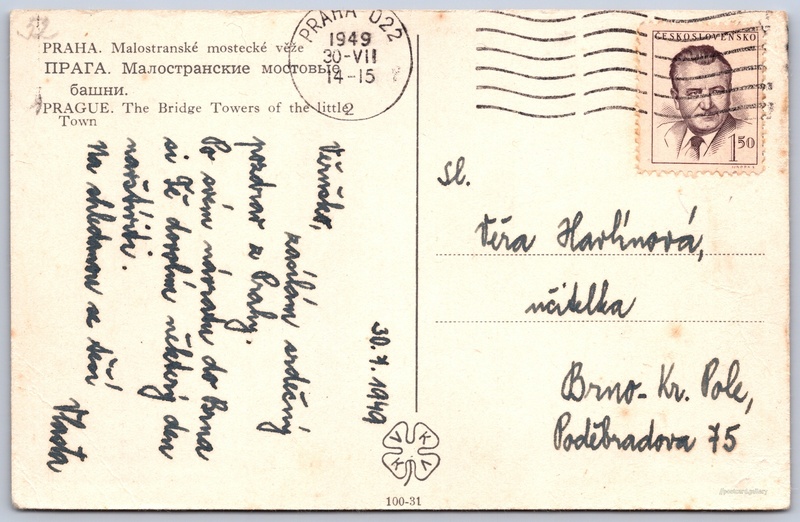 52
PRAHA. Malostranské mostecké věže
ПРАГА. Малостранские мостовые
башни.
PRAGUE. The Bridge Towers of the little
Town
PRAHA 022
1949
30-VII
14-15
2
ČESKOSLOVENSKO
1 50
Věruško,
zasílám srdečný
pozdrav z Prahy.
Po svém návratu do Brna
si Tě dovolím některý den
navštíviti.
Na shledanou se těší
Vlasta
30.7.1949
Sl.
Věra Havlínová,
učitelka
Brno-Kr. Pole,
Poděbradova 75
V K V K
100-31